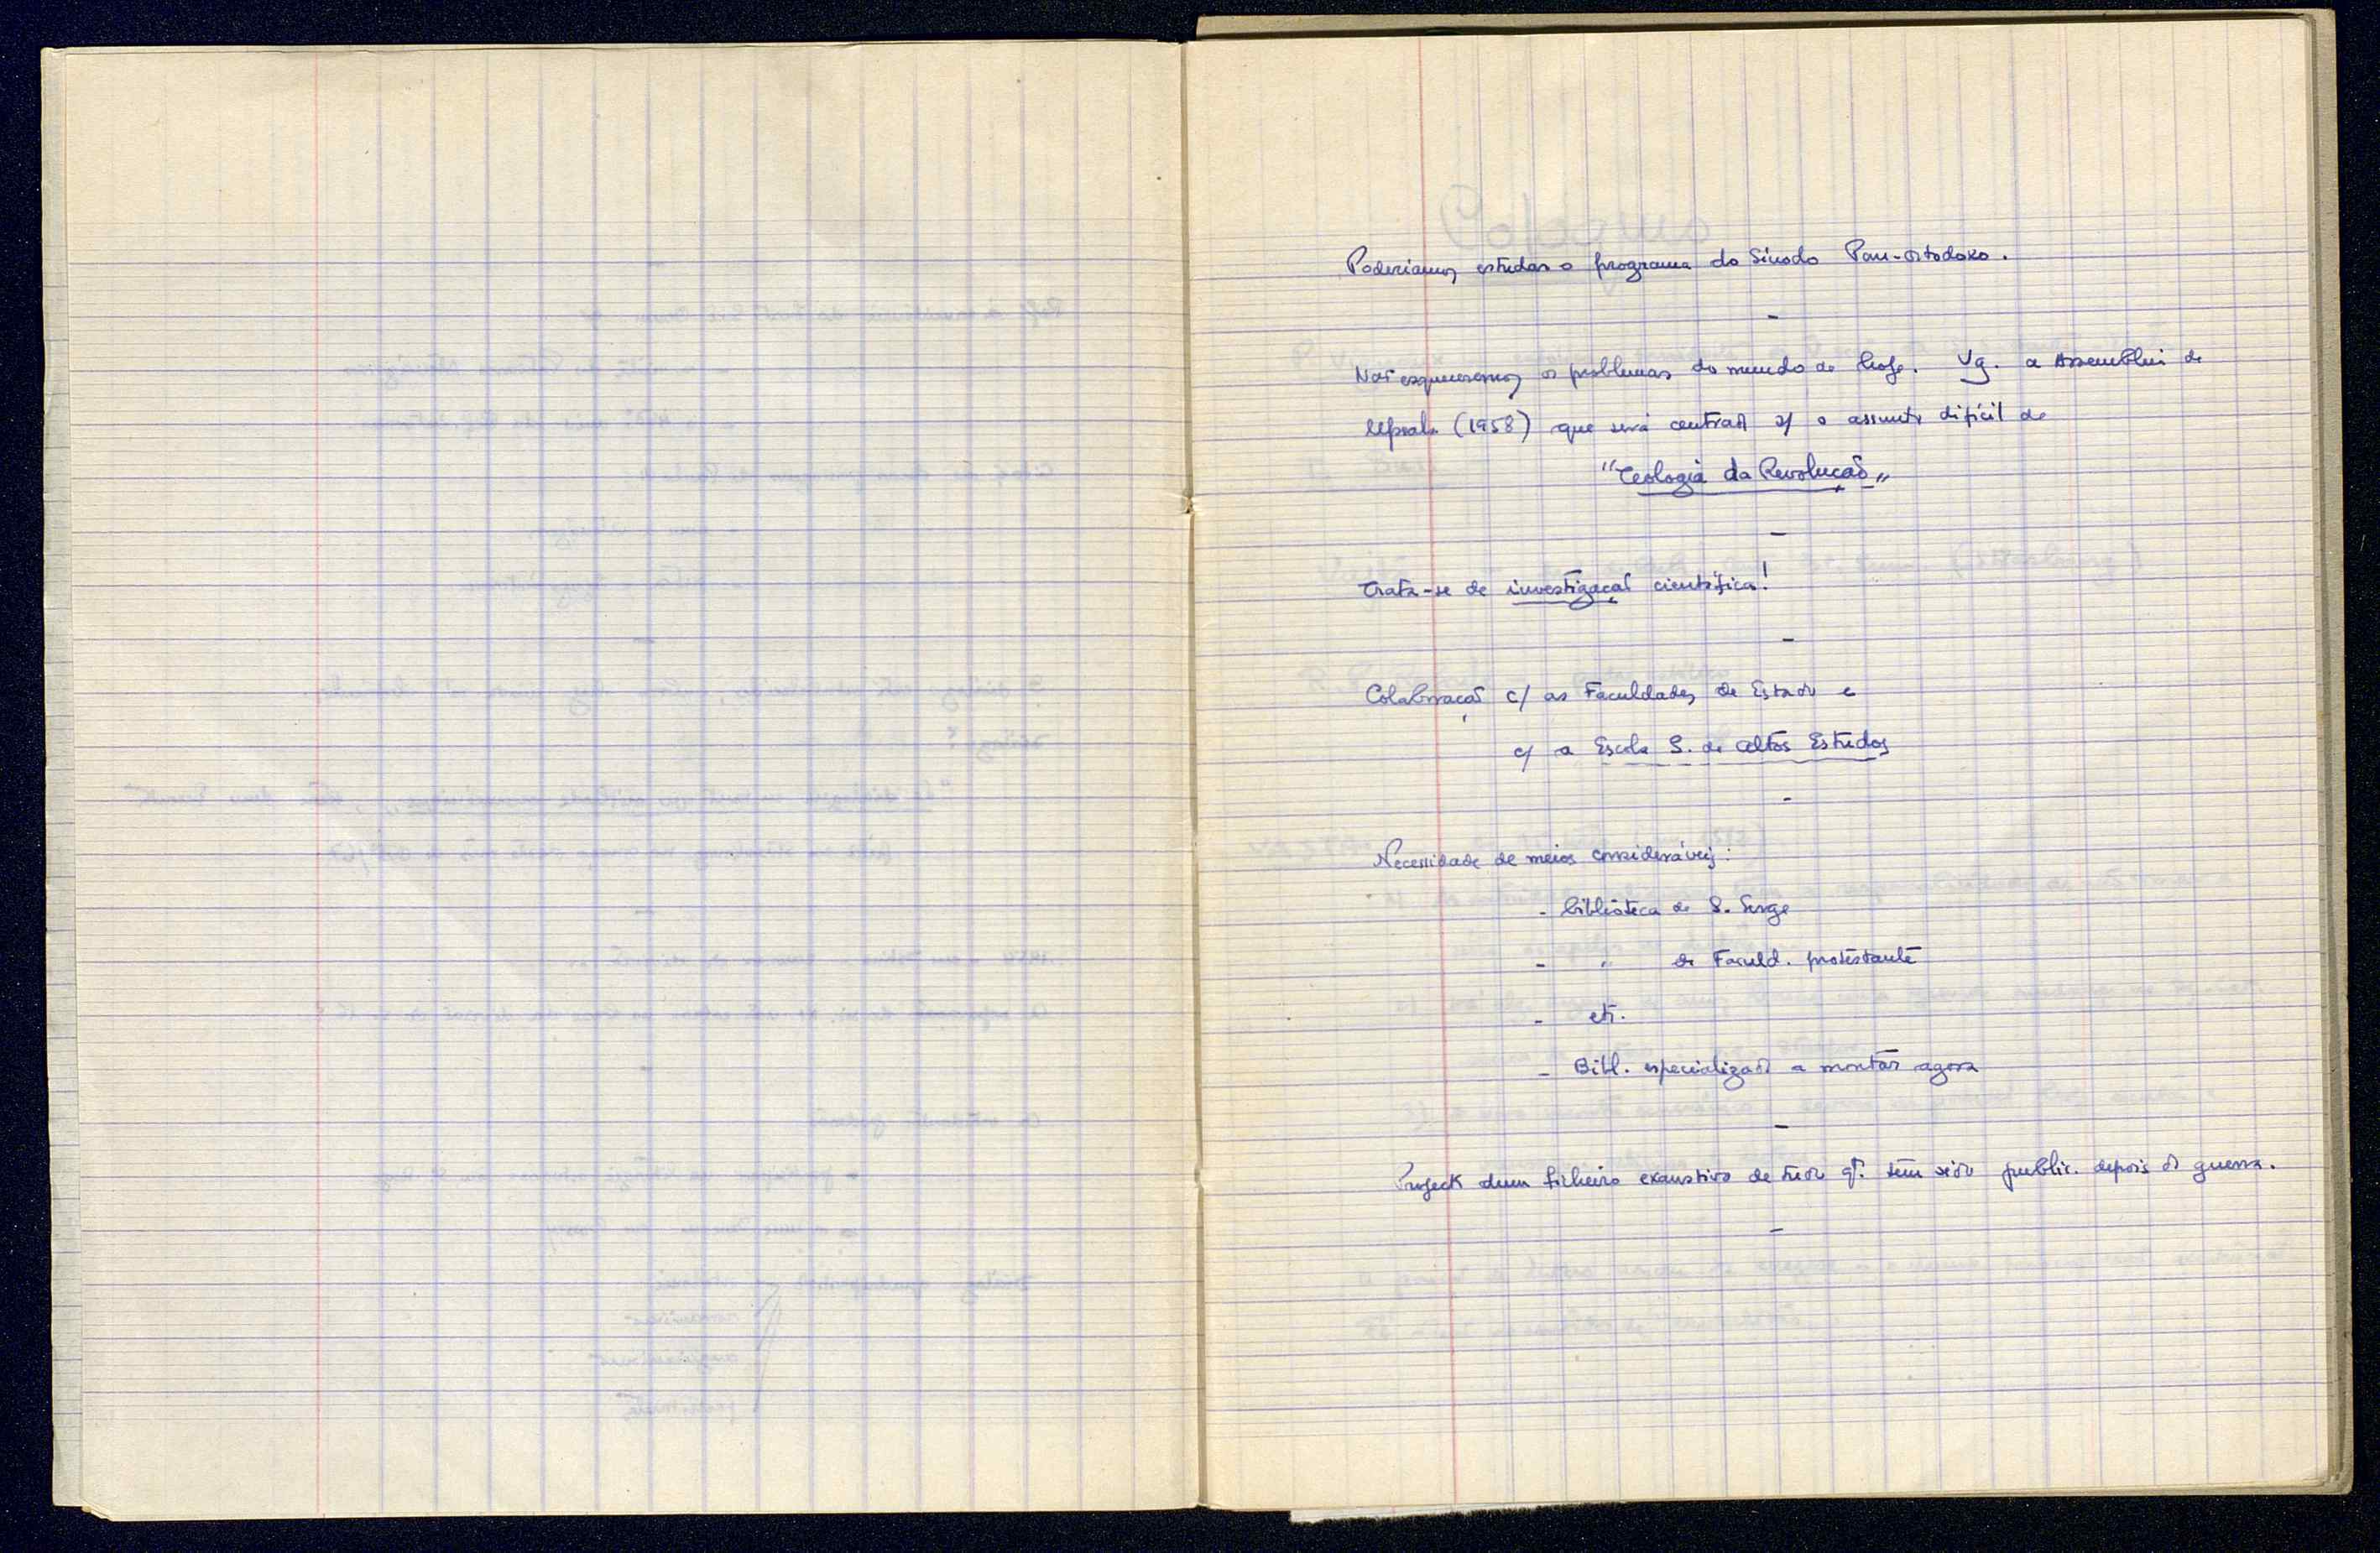 Poderiamos estudar o programa do Sínodo Pan-ortodoxo.
-
Não esqueceremos os problemas do mundo de hoje. Vg. a Assembleia de
Upsala (1958) que será centrado s/ o assunto difícil de
"Teologia da Revolução"
-
Trata-se de investigação científica!
-
Colaboração c/ as Faculdades de Estado e
c/ a Escola S. de Altos Estudos
-
Necessidade de meios consideráveis:
- biblioteca de S. Serge
- " da Faculd. protestante
- etc.
- Bibl. especializada a montar agora
-
Project dum ficheiro exaustivo de tudo qt. tem sido public. depois da guerra.
-